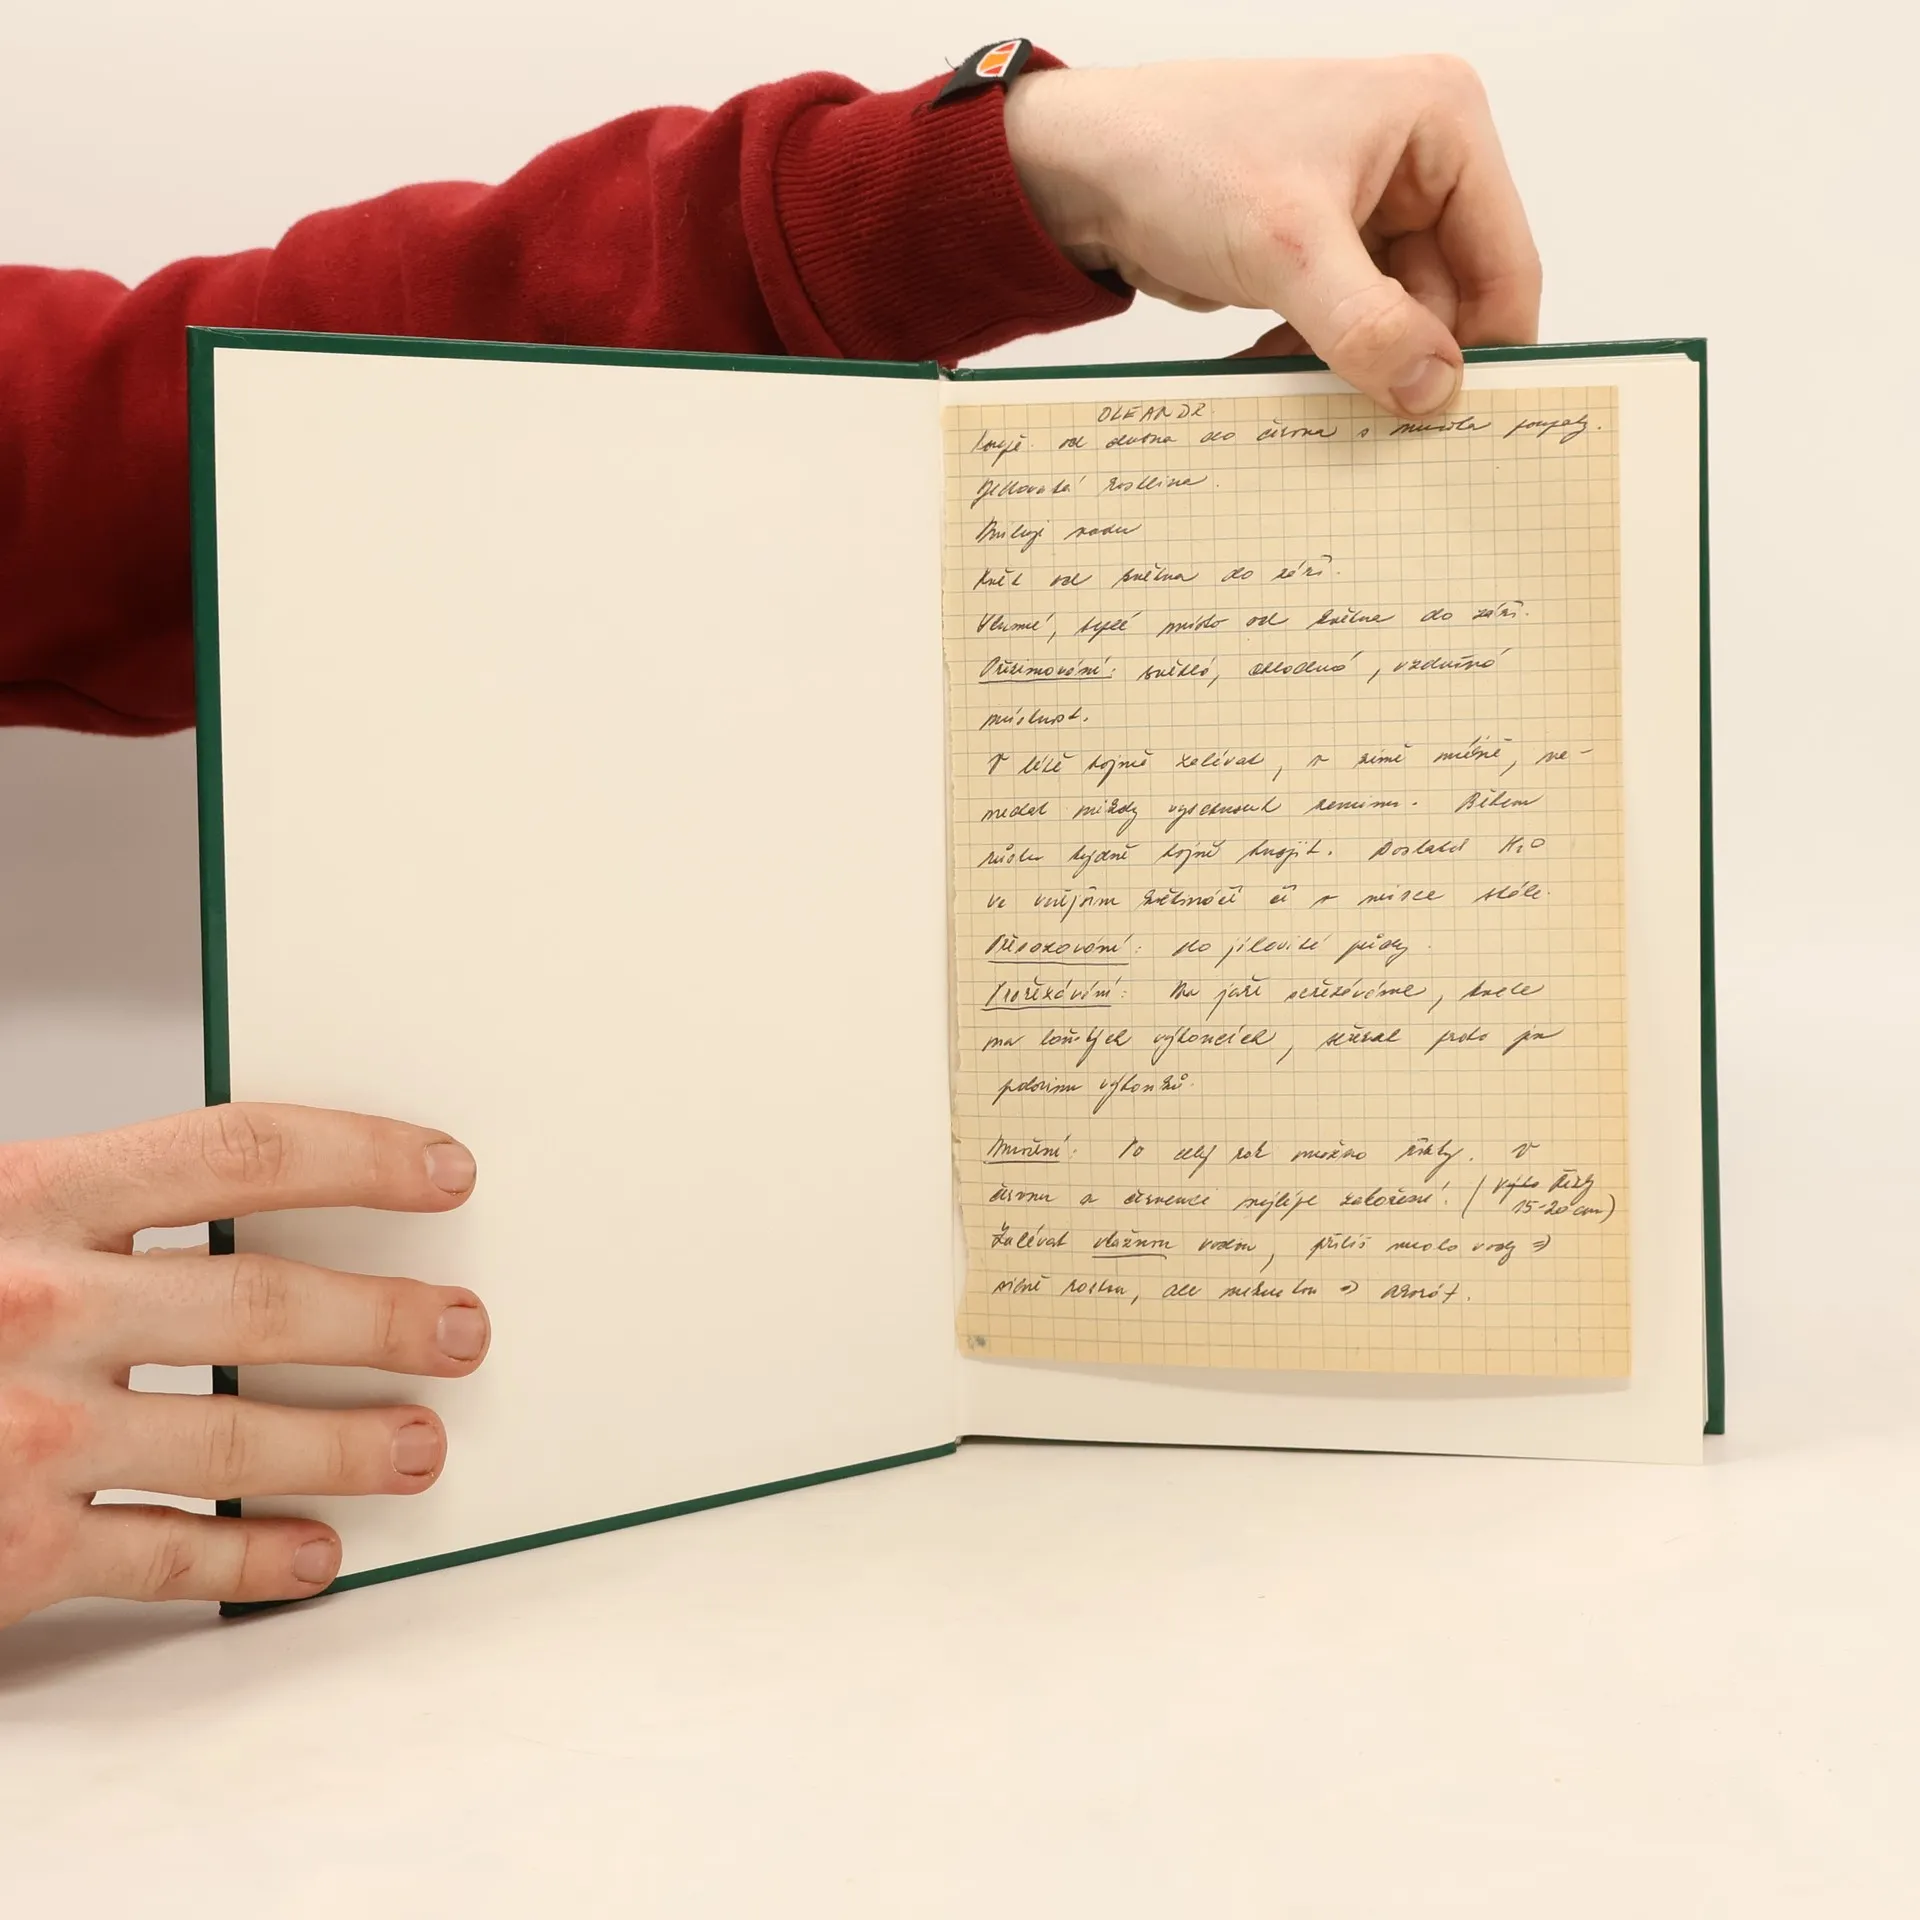 OLEANDR
Kupř. od dubna do června s mnoha poupaty.
Jedovatá rostlina.
Miluje vodu
Květ od května do září.
Slunné, teplé místo od května do září.
Přezimování: světlá, chladná, vzdušná
místnost.
V létě hojně zalévat, v zimě méně, ne-
nedat nikdy vyschnout zeminu. Během
růstu týdně hojně hnojit. Dostatek H2O
ve vnějším květináči či v misce stále.
Přesazování: do jílovité půdy.
Prořezávání: Na jaře seřezáváme, kvete
na loňských výhoncích, seřezat proto jen
polovinu výhonků.
Množení: Po celý rok možno řízky. V
červnu a červenci nejlépe zakoření. (řízky
15-20 cm)
Zalévat vlažnou vodou, příliš mnoho vody =>
silně rostou, ale nekvetou =>